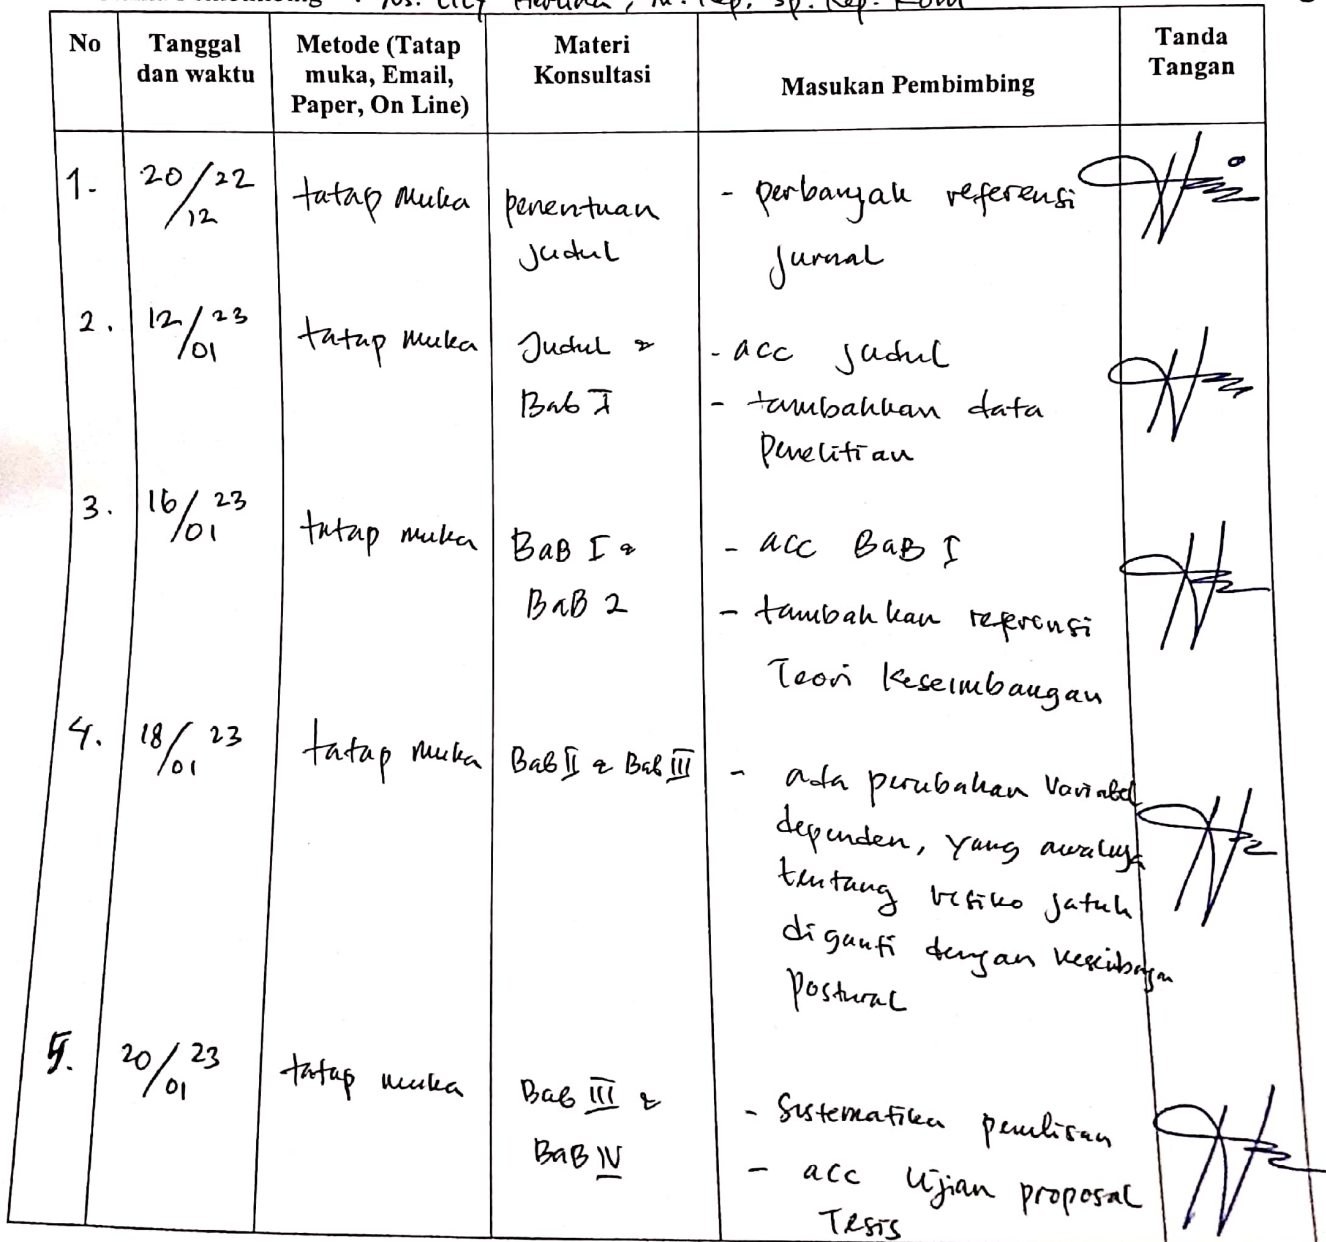 M. Kep, Sp. Kep. Kom
No
Tanggal dan waktu
Metode (Tatap muka, Email, Paper, On Line)
Materi Konsultasi
Masukan Pembimbing
Tanda Tangan
1. 20/12 22 tatap muka penentuan - perbanyak referensi
judul jurnal
2. 12/01 23 tatap muka Judul & - acc judul
Bab I - tambahkan data
penelitian
3. 16/01 23 tatap muka BaB I & - acc BaB I
BaB 2 - tambahkan referensi
Teori keseimbangan
4. 18/01 23 tatap muka Bab II & Bab III - ada perubahan Variabel
dependen, yang awalnya
tentang resiko jatuh
diganti dengan
Postural
5. 20/01 23 tatap muka Bab III & - Sistematika penulisan
BaB IV - acc Ujian proposal
Tesis